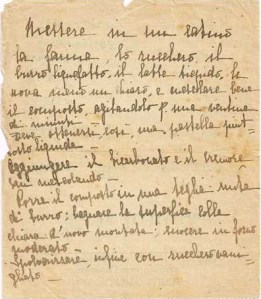 Mettere in un catino
la farina, lo zucchero, il
burro liquefatto, il latte tiepido, le
uova meno un chiaro, e mescolare bene
il composto, agitandolo p. una ventina
di minuti -
Deve ottenersi così una pastella piut
tosto liquida -
Aggiungere il bicarbonato e il cremore
mescolando -
Porre il composto in una teglia unta
di burro; bagnare la superficie colla
chiara d'uovo montata; cuocere in forno
moderato -
Spolverizzare infine con zucchero vani
gliato -